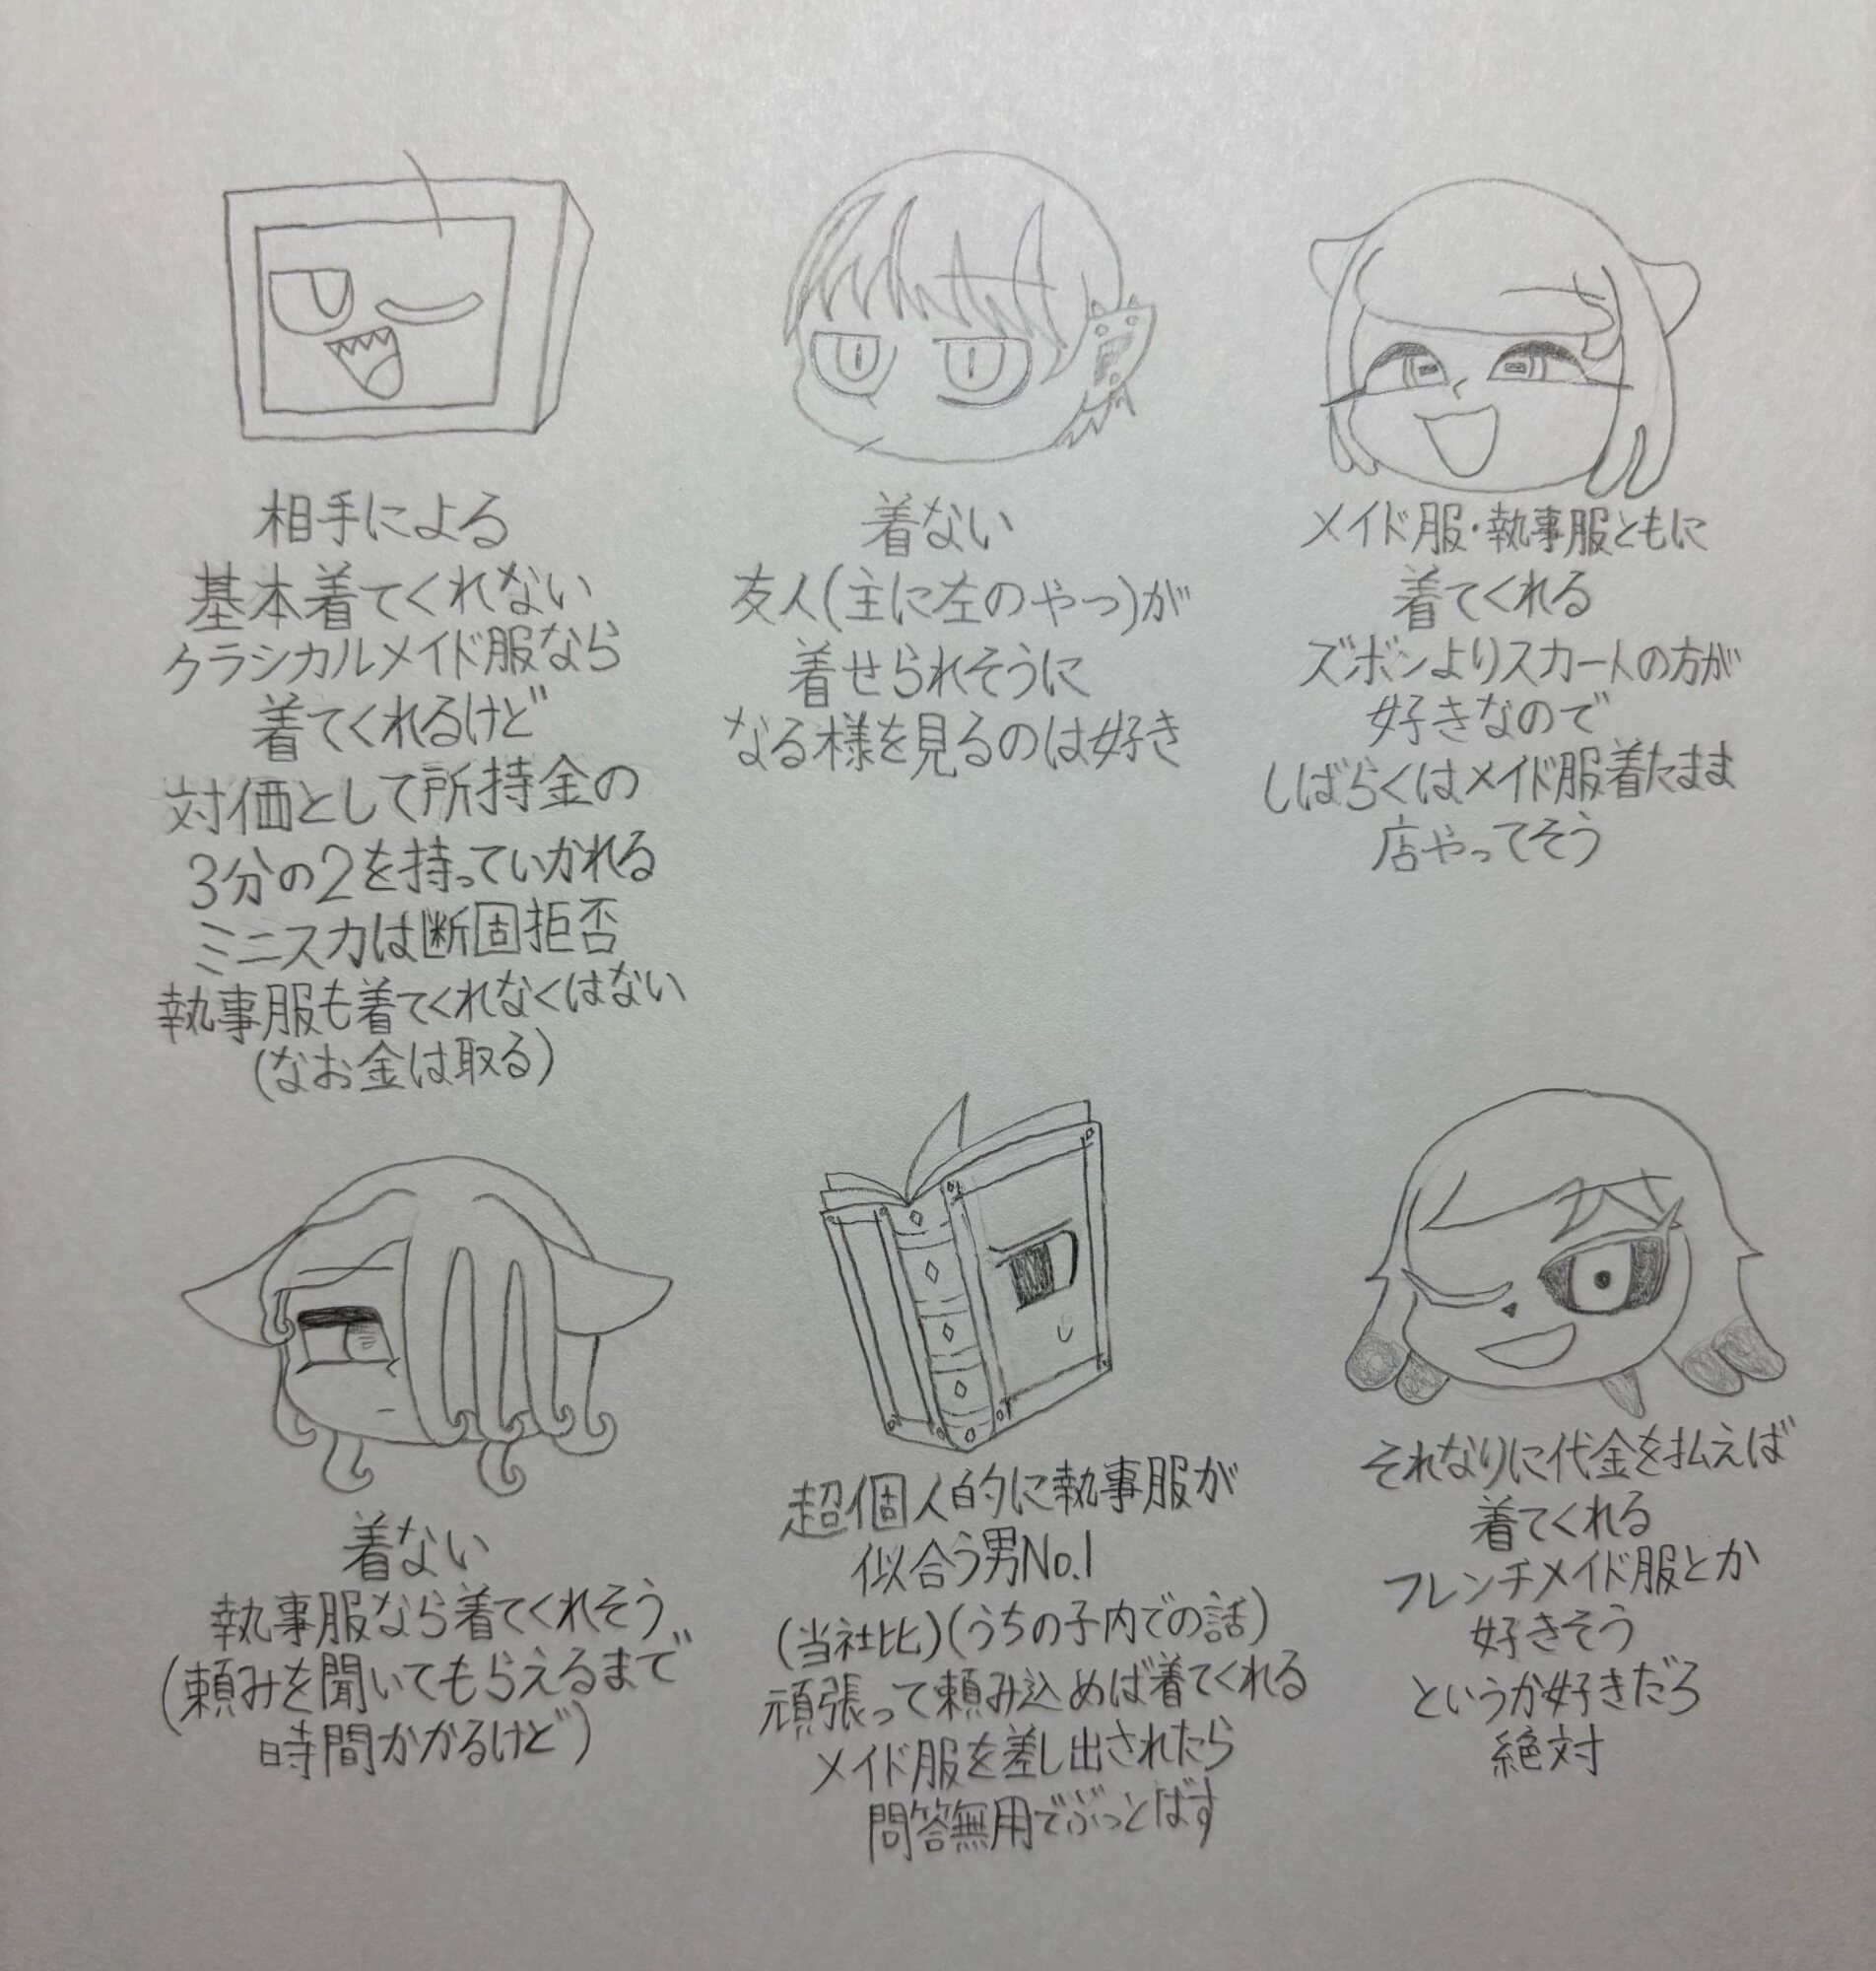 相手による
基本着てくれない
クラシカルメイド服なら
着てくれるけど
対価として所持金の
3分の2を持っていかれる
ミニスカは断固拒否
執事服も着てくれなくはない
(なお金は取る)
着ない
友人(主に左のやつ)が
着せられそうに
なる様を見るのは好き
メイド服・執事服ともに
着てくれる
ズボンよりスカートの方が
好きなので
しばらくはメイド服着たまま
店やってそう
着ない
執事服なら着てくれそう
(頼みを聞いてもらえるまで
時間かかるけど)
超個人的に執事服が
似合う男No.1
(当社比)(うちの子内での話)
頑張って頼み込めば着てくれる
メイド服を差し出されたら
問答無用でぶっとばす
それなりに代金を払えば
着てくれる
フレンチメイド服とか
好きそう
というか好きだろ
絶対